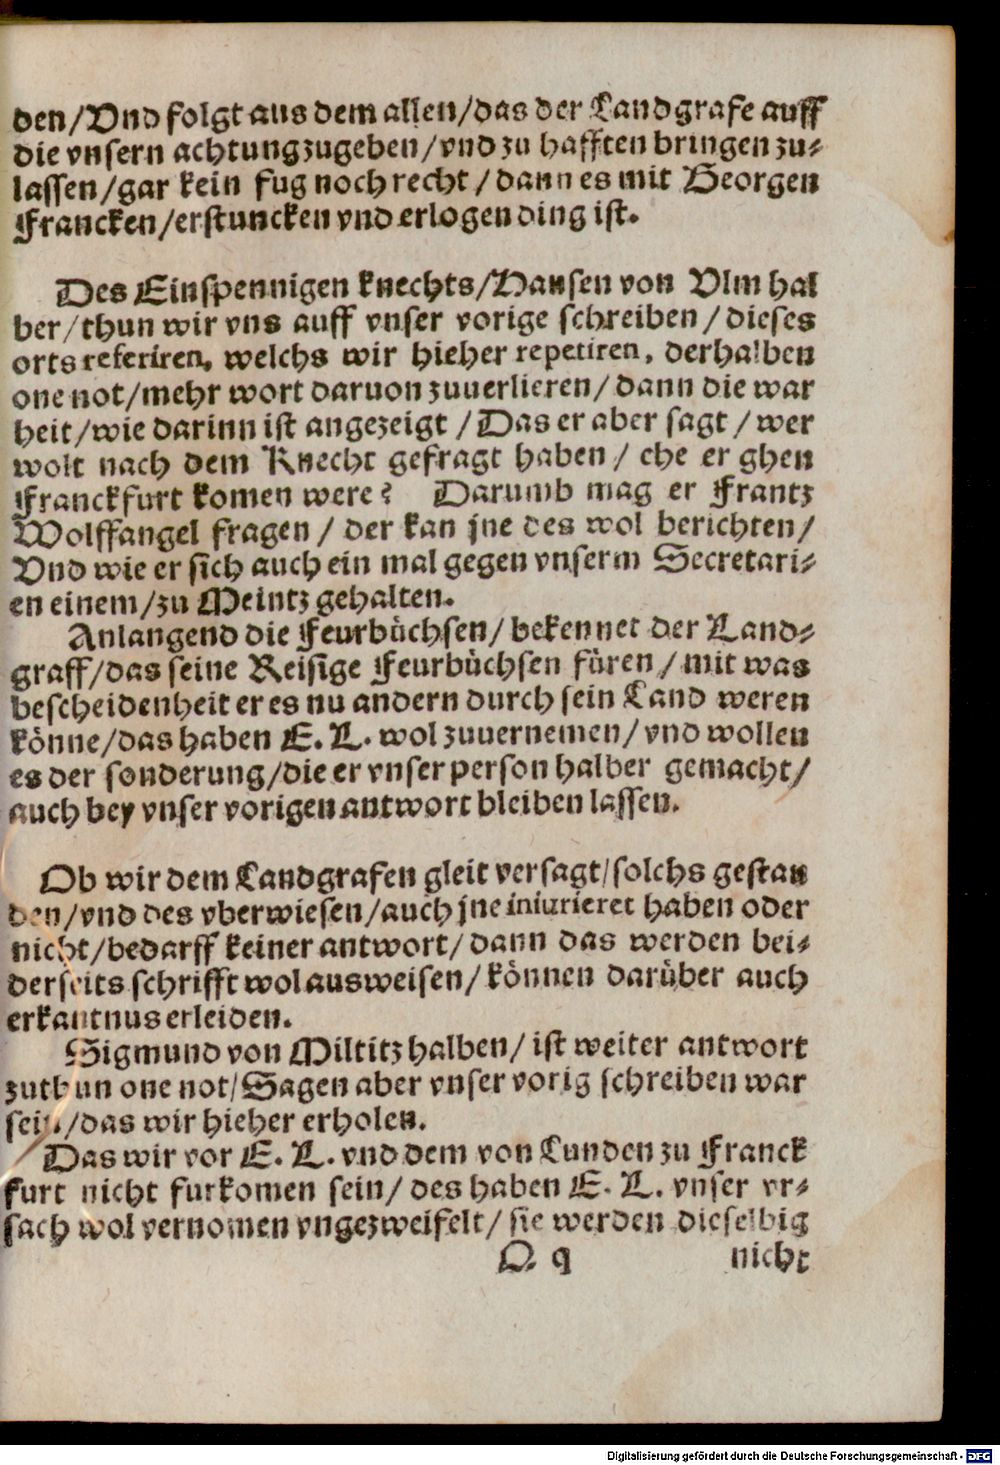 den/Vnd folgt aus dem allen/das der Landgrafe auff
die vnsern achtung zugeben/vnd zu hafften bringen zu-
lassen/gar kein fug noch recht/dann es mit Georgen
Francken/erstuncken vnd erlogen ding ist.
Des Einspennigen knechts/Hansen von Vlm hal
ber/thun wir vns auff vnser vorige schreiben/dieses
orts referiren, welchs wir hieher repetiren, derhalben
one not/mehr wort daruon zuuerlieren/dann die war
heit/wie darinn ist angezeigt/Das er aber sagt/wer
wolt nach dem Knecht gefragt haben/ehe er ghen
Franckfurt komen were? Darumb mag er Frantz
Wolffangel fragen/der kan jne des wol berichten/
Vnd wie er sich auch ein mal gegen vnserm Secretari-
en einem/zu Meintz gehalten.
Anlangend die Feurbüchsen/bekennet der Land-
graff/das seine Reisige Feurbüchsen füren/mit was
bescheidenheit er es nu andern durch sein Land weren
könne/das haben E. L. wol zuuernemen/vnd wollen
es der sonderung/die er vnser person halber gemacht/
auch bey vnser vorigen antwort bleiben lassen.
Ob wir dem Landgrafen gleit versagt/solchs gestan
den/vnd des vberwiesen/auch jne iniurieret haben oder
nicht/bedarff keiner antwort/dann das werden bei-
derseits schrifft wol ausweisen/können darüber auch
erkantnus erleiden.
Sigmund von Miltitz halben/ist weiter antwort
zuthun one not/Sagen aber vnser vorig schreiben war
sein/das wir hieher erholen.
Das wir vor E. L. vnd dem von Lunden zu Franck
furt nicht furkomen sein/des haben E. L. vnser vr-
sach wol vernomen vngezweifelt/sie werden dieselbig
Q q nicht
Digitalisierung gefördert durch die Deutsche Forschungsgemeinschaft - DFG